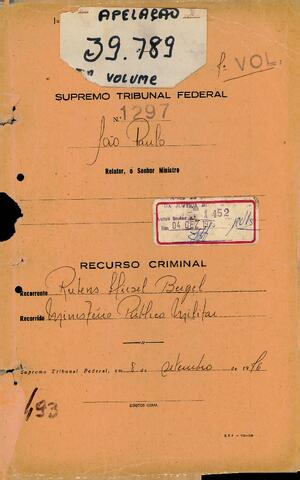 APELAÇÃO
39.789
VOLUME
1º VOL.
SUPREMO TRIBUNAL FEDERAL
N.º 1297
São Paulo
Relator, o Senhor Ministro
1452
04 DEZ
RECURSO CRIMINAL
Recorrente Rubens
Recorrido Ministério Público Militar
Supremo Tribunal Federal, em 8 de setembro de 1976
DIRETOR GERAL
493